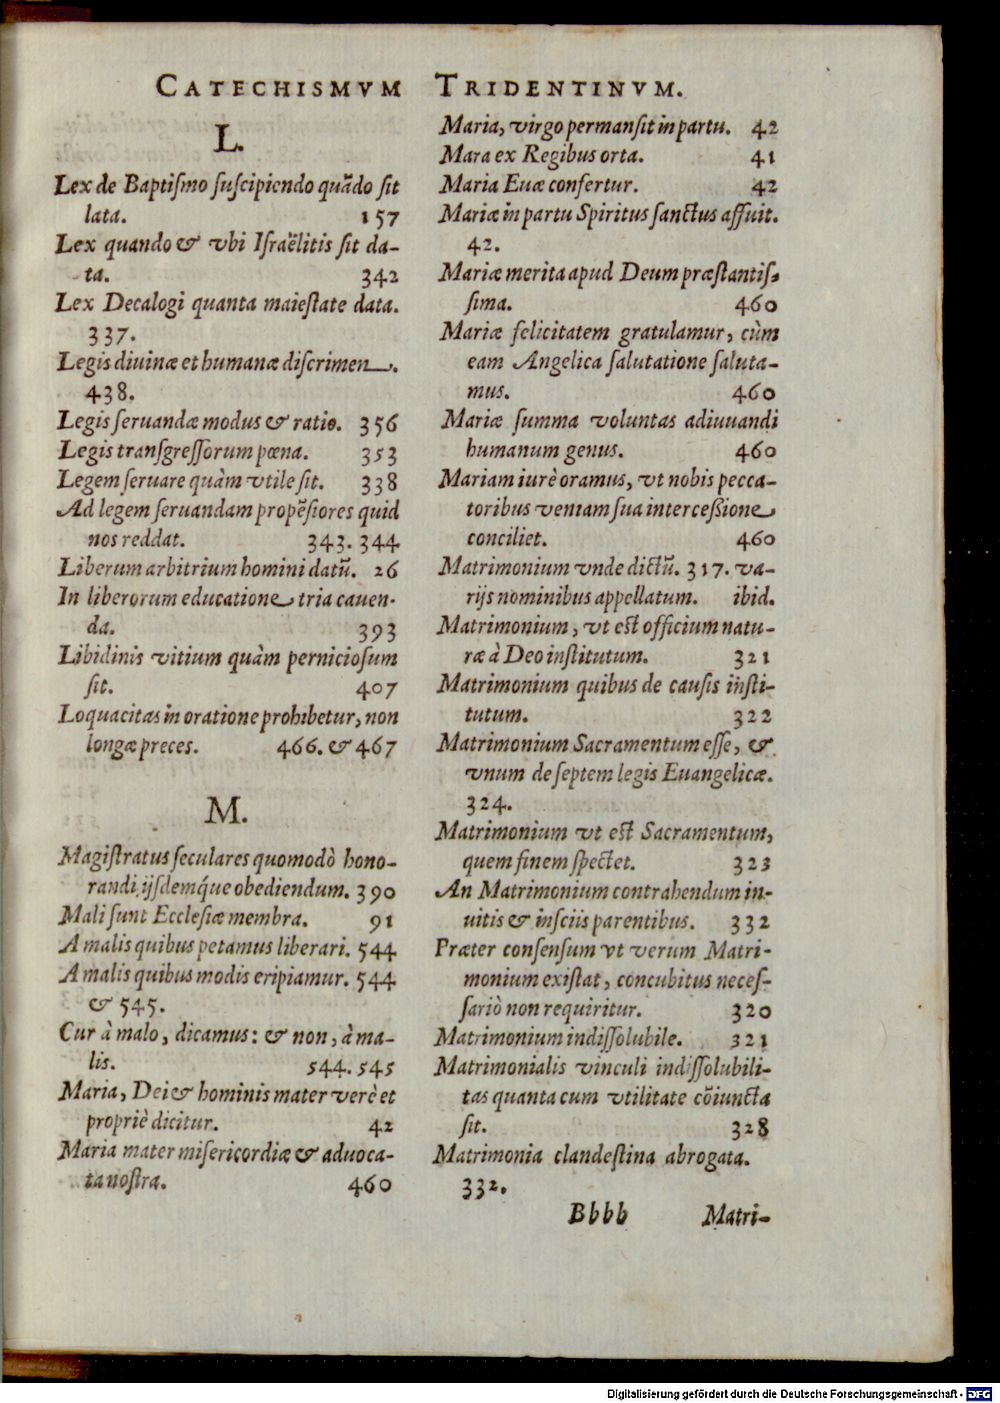 CATECHISMVM TRIDENTINVM.
L.
Lex de Baptiſmo ſuſcipiendo quãdo ſit
lata. 157
Lex quando & vbi Iſraëlitis ſit da-
ta. 342
Lex Decalogi quanta maieſtate data.
337.
Legis diuinæ et humanæ diſcrimen.
438.
Legis ſeruandæ modus & ratio. 356
Legis tranſgreſſorum pœna. 353
Legem ſeruare quàm vtile ſit. 338
Ad legem ſeruandam propẽſiores quid
nos reddat. 343. 344
Liberum arbitrium homini datũ. 26
In liberorum educatione tria cauen-
da. 393
Libidinis vitium quàm pernicioſum
ſit. 407
Loquacitas in oratione prohibetur, non
longæ preces. 466. & 467
M.
Magiſtratus ſeculares quomodò hono-
randi, ijſdemq́ue obediendum. 390
Mali ſunt Eccleſiæ membra. 91
A malis quibus petamus liberari. 544
A malis quibus modis eripiamur. 544
& 545.
Cur à malo, dicamus: & non, à ma-
lis. 544. 545
Maria, Dei & hominis mater verè et
propriè dicitur. 42
Maria mater miſericordiæ & aduoca-
ta noſtra. 460
Maria, virgo permanſit in partu. 42
Mara ex Regibus orta. 41
Maria Euæ confertur. 42
Mariæ in partu Spiritus ſanctus affuit.
42.
Mariæ merita apud Deum præſtantiſ-
ſima. 460
Mariæ felicitatem gratulamur, cùm
eam Angelica ſalutatione ſaluta-
mus. 460
Mariæ ſumma voluntas adiuuandi
humanum genus. 460
Mariam iurè oramus, vt nobis pecca-
toribus veniam ſua interceßione
conciliet. 460
Matrimonium vnde dictũ. 317. va-
rijs nominibus appellatum. ibid.
Matrimonium, vt eſt officium natu-
ræ à Deo inſtitutum. 321
Matrimonium quibus de cauſis inſti-
tutum. 322
Matrimonium Sacramentum eſſe, &
vnum de ſeptem legis Euangelicæ.
324.
Matrimonium vt eſt Sacramentum,
quem finem ſpectet. 323
An Matrimonium contrahendum in-
uitis & inſciis parentibus. 332
Præter conſenſum vt verum Matri-
monium exiſtat, concubitus neceſ-
ſariò non requiritur. 320
Matrimonium indiſſolubile. 321
Matrimonialis vinculi indiſſolubili-
tas quanta cum vtilitate cõiuncta
ſit. 328
Matrimonia clandeſtina abrogata.
332.
Bbbb Matri-
Digitalisierung gefördert durch die Deutsche Forschungsgemeinschaft - DFG